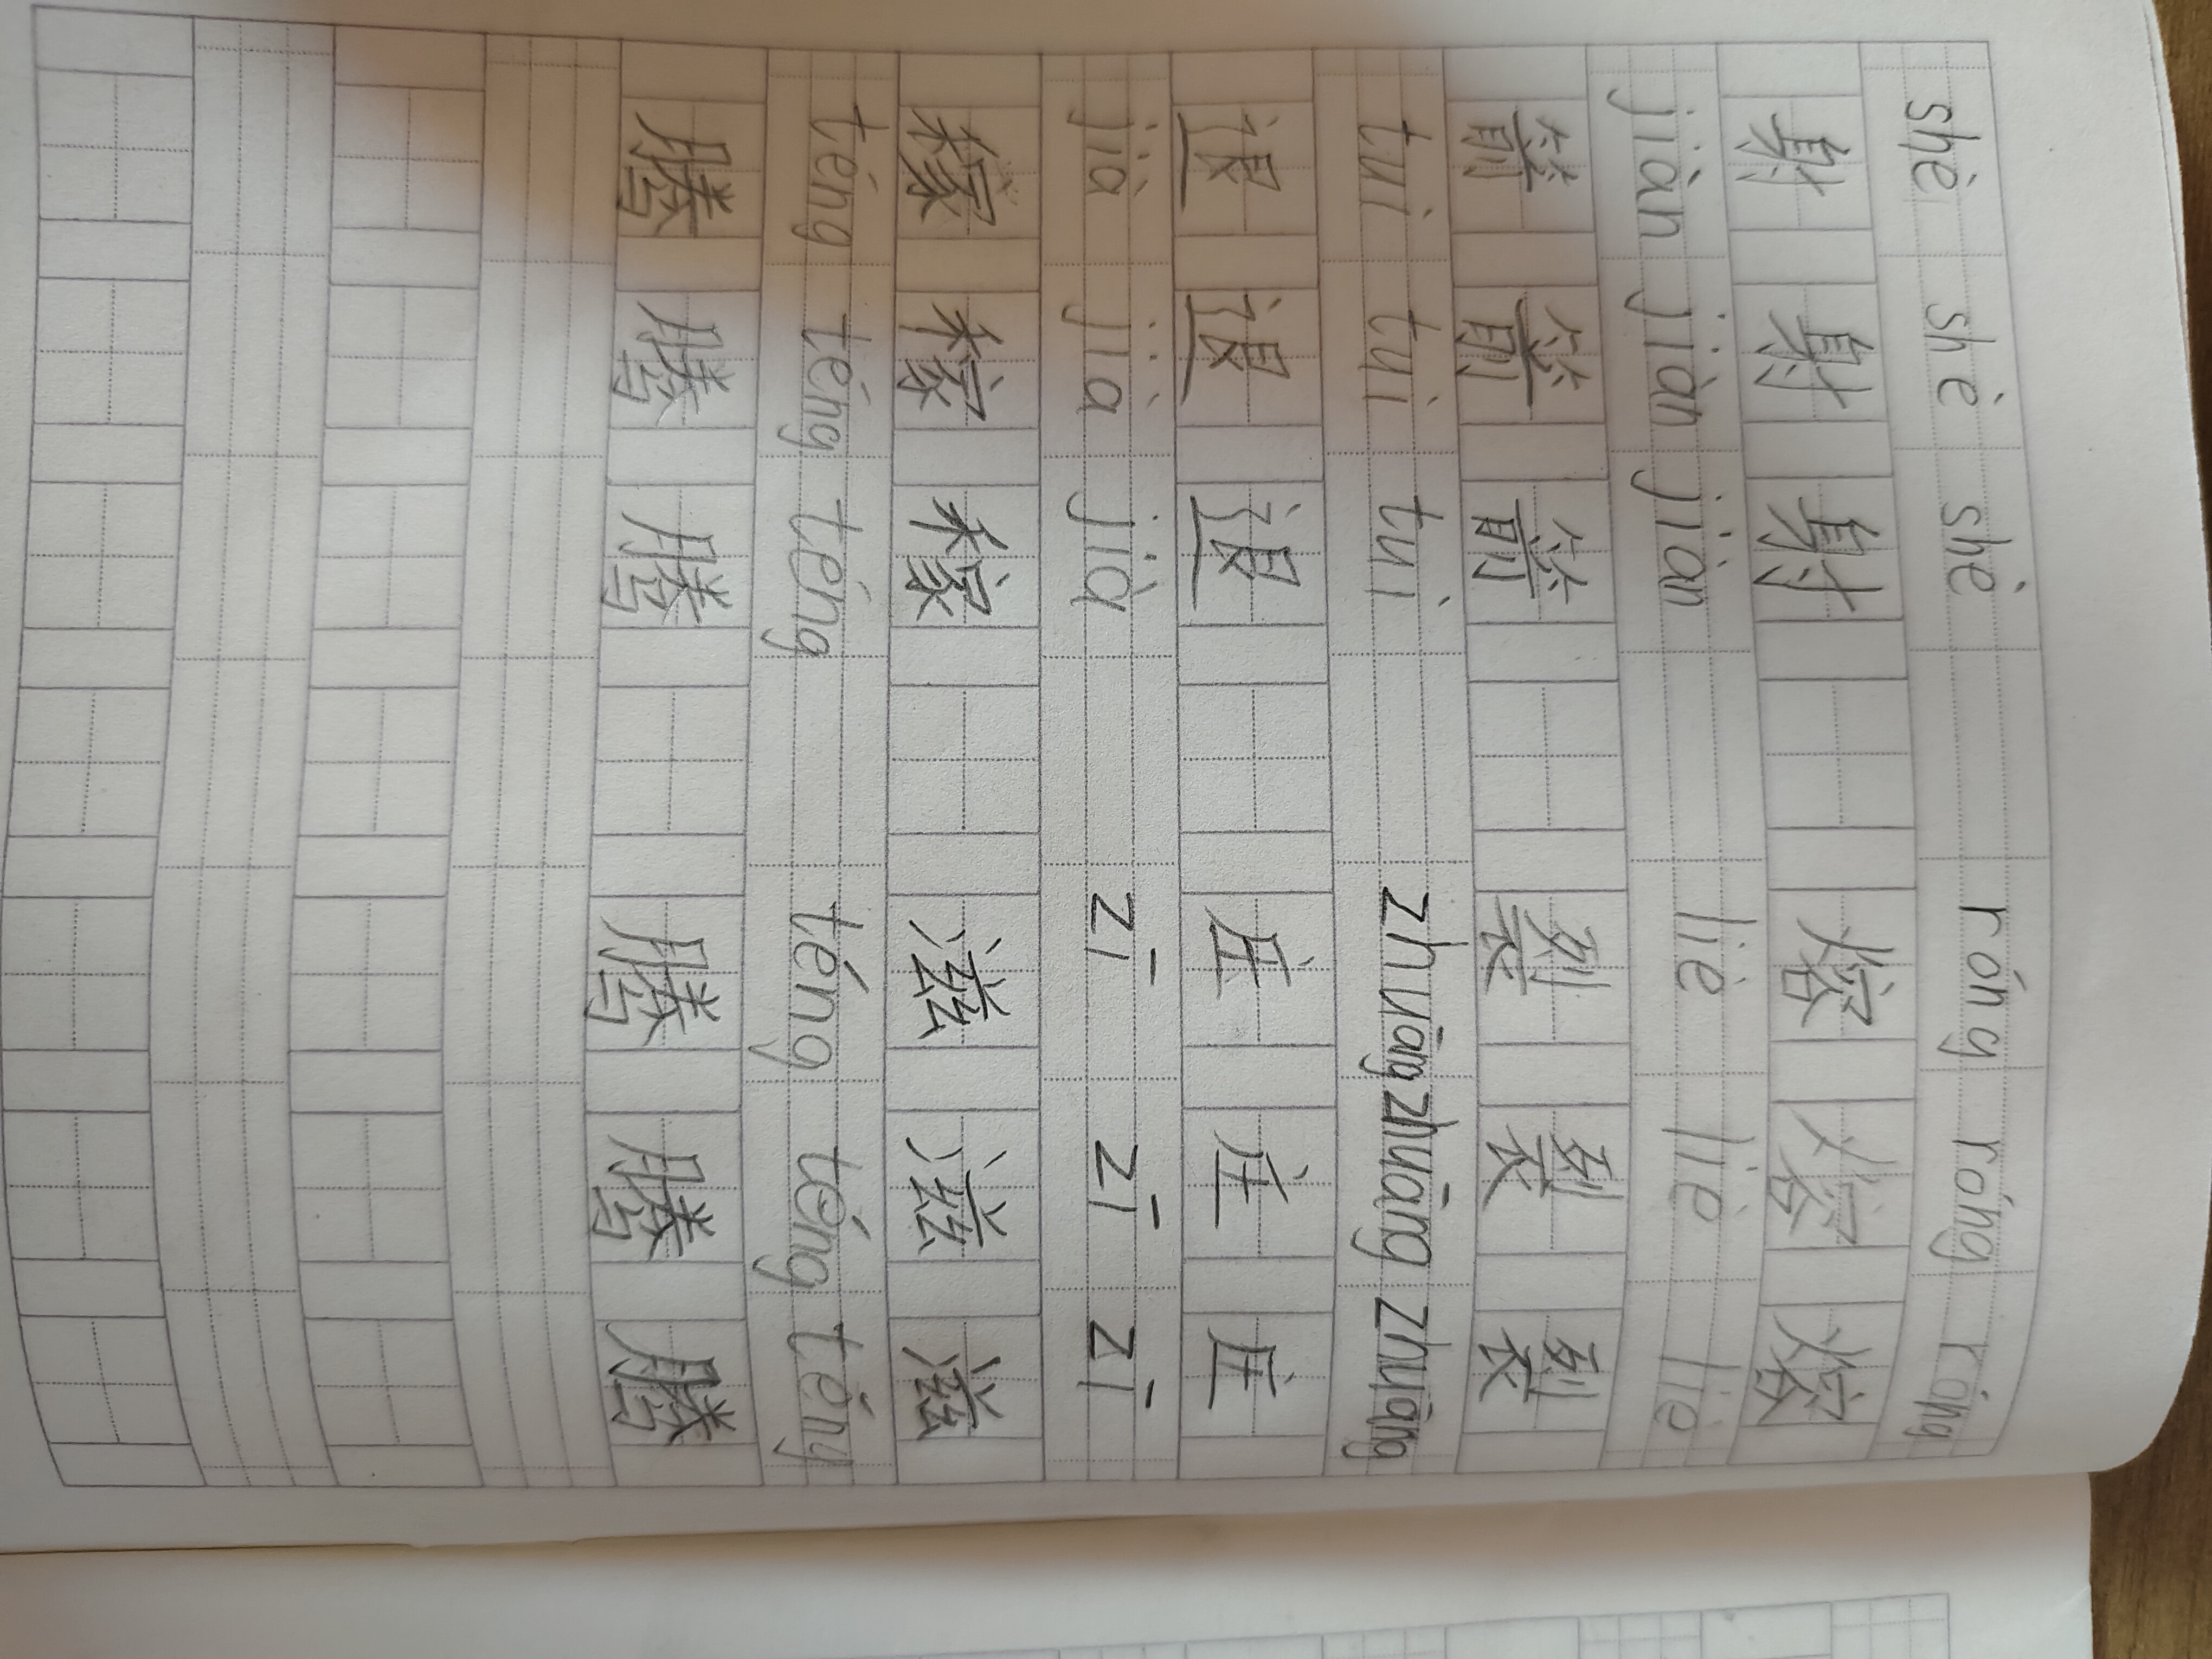 shè shè shè róng róng róng
射 射 射 熔 熔 熔
jiàn jiàn jiàn liè liè liè
箭 箭 箭 裂 裂 裂
tuì tuì tuì zhuāng zhuāng zhuāng
退 退 退 庄 庄 庄
jià jià jià zī zī zī
稼 稼 稼 滋 滋 滋
téng téng téng téng téng téng
腾 腾 腾 腾 腾 腾